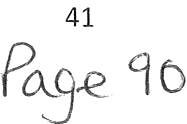 41
Page 90